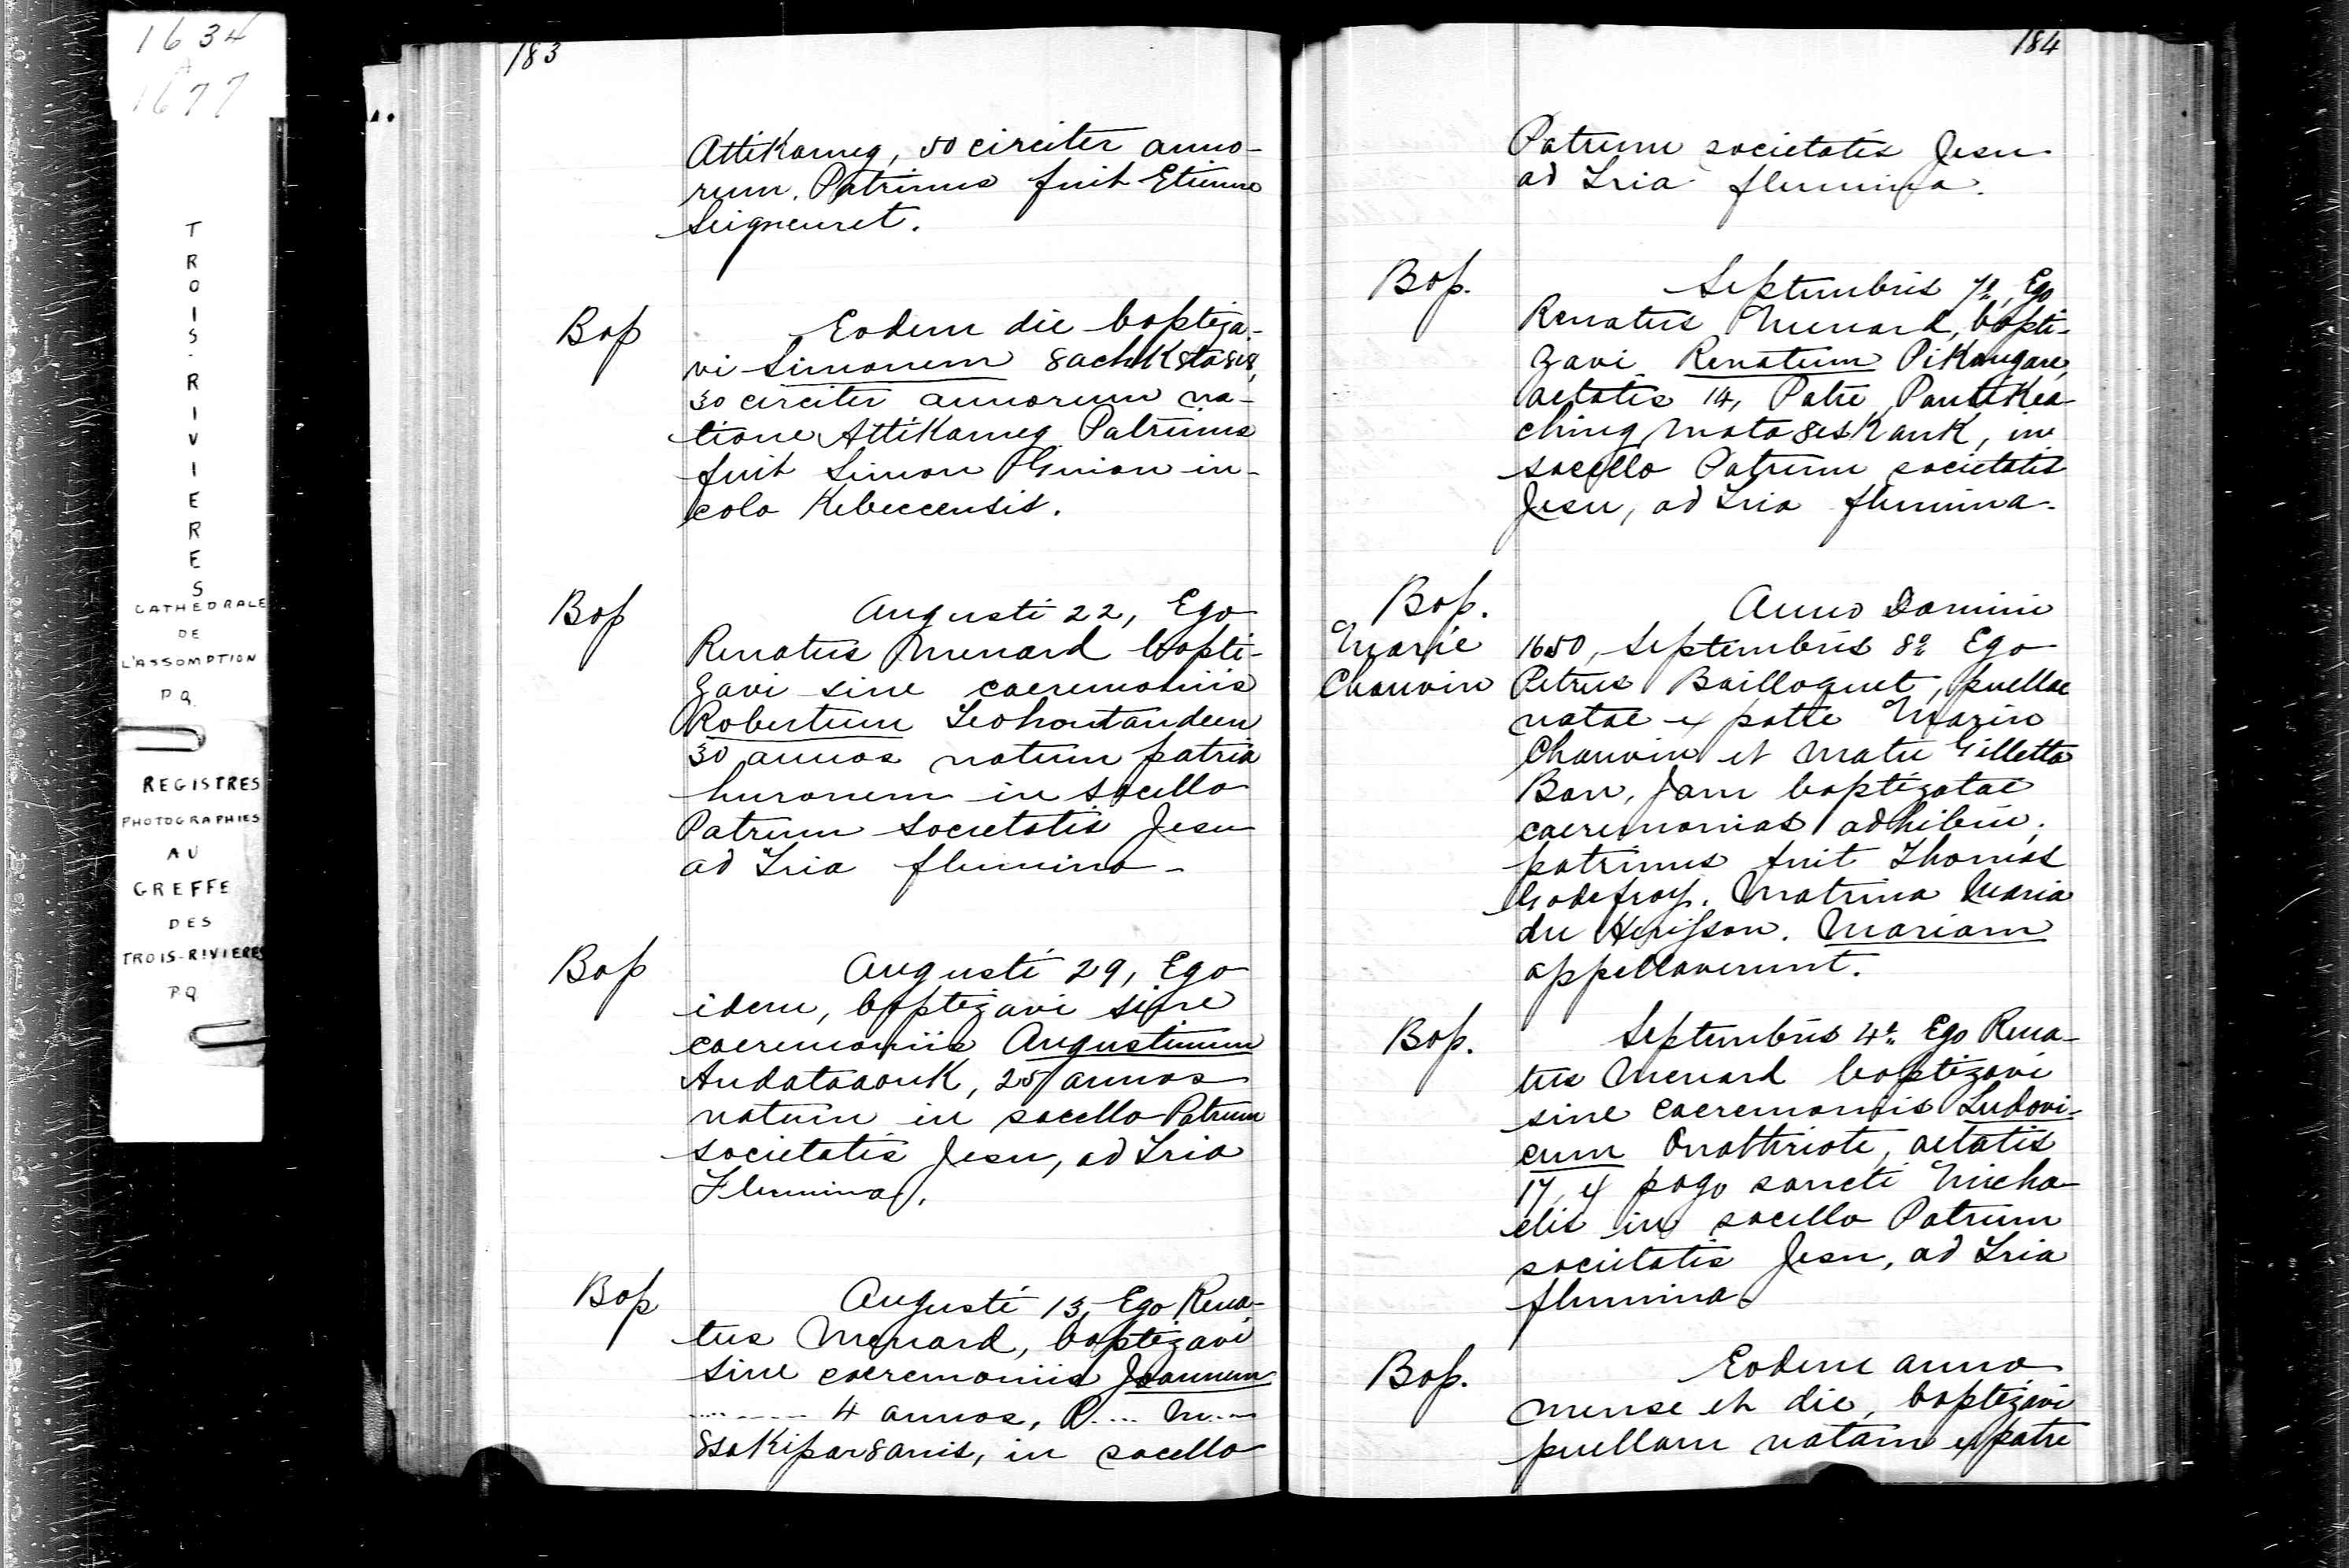 1634
A
1677
TROIS-RIVIERES
CATHEDRALE
DE
L'ASSOMPTION
P Q
REGISTRES
PHOTOGRAPHIES
AU
GREFFE
DES
TROIS-RIVIERES
P Q
183
Attikameg, 50 circiter anno-
rum. Patrinus fuit Etienne
Seigneuret.
Bap
Eodem die baptiza-
vi Simonem 8achk8ta8is,
30 circiter annorum na-
tione Attikameg Patrinus
fuit Simon Guion in-
cola Kebeccensis.
Bap
Augusti 22, Ego
Renatus Menard bapti-
zavi sine caeremoniis
Robertum Teohontandeen
30 annos natum patria
huronem in sacello
Patrum Societatis Jesu
ad Tria flumina-
Bap
Augusti 29, Ego
idem, baptizavi sine
caeremoniis Augustinum
Andataaouk, 25 annos
natum in sacello Patrum
Societatis Jesu, ad Tria
Flumina.
Bap
Augusti 13, Ego Rena-
tus Menard, baptizavi
sine caeremoniis Joannem
......... 4 annos, P.... M....
8sakipar8anis, in sacello
184
Patrum societatis Jesu
ad Tria flumina.
Bap.
Septembris 7a, Ego
Renatus Menard, bapti-
zavi Renatum Pikangare,
aetatis 14, Patre
ching Mata8eskank, in
sacello Patrum societatis
Jesu, ad Tria flumina-
Bap.
Marie
Chauvin
Anno Domini
1650, Septembris 8a Ego
Petrus Bailloquet, puellae
natae ex patre Marin
Chauvin et matre Gilletta
Ban, jam baptizatae
caeremonias adhibui;
patrinus fuit Thomas
Godefroy. Matrina Maria
du Herisson. Mariam
appellaverunt.
Bap.
Septembris 4a Ego Rena-
tus Menard baptizavi
sine caeremoniis Ludovi-
cum Onathriote, aetatis
17, ex pago sancti Micha-
elis in sacello Patrum
societatis Jesu, ad Tria
flumina.
Bap.
Eodem anno
mense et die, baptizavi
puellam natam ex patre